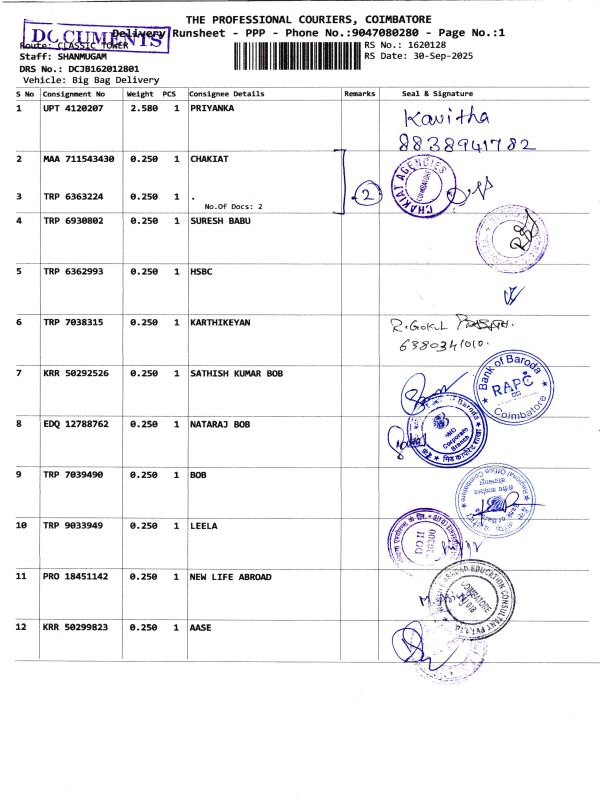 THE PROFESSIONAL COURIERS, COIMBATORE
DOCUMENTS
Delivery Runsheet - PPP - Phone No.:9047080280 - Page No.:1
Route: CLASSIC TOWER
RS No.: 1620128
Staff: SHANMUGAM
RS Date: 30-Sep-2025
DRS No.: DCJB162012801
Vehicle: Big Bag Delivery
S No Consignment No Weight PCS Consignee Details Remarks Seal & Signature
1 UPT 4120207 2.580 1 PRIYANKA
Kavitha
8838941782
2 MAA 711543430 0.250 1 CHAKIAT
CHAKIAT AGENCIES
2
3 TRP 6363224 0.250 1 .
No.Of Docs: 2
4 TRP 6930802 0.250 1 SURESH BABU
5 TRP 6362993 0.250 1 HSBC
6 TRP 7038315 0.250 1 KARTHIKEYAN
R. Gokul
6380341010.
7 KRR 50292526 0.250 1 SATHISH KUMAR BOB
Bank of Baroda
RAPC
Coimbatore
8 EDQ 12788762 0.250 1 NATARAJ BOB
Corporate
Branch
9 TRP 7039490 0.250 1 BOB
Regional Office
10 TRP 9033949 0.250 1 LEELA
11 PRO 18451142 0.250 1 NEW LIFE ABROAD
EDUCATION CONSULTANT PVT.LTD.
COIMBATORE
12 KRR 50299823 0.250 1 AASE